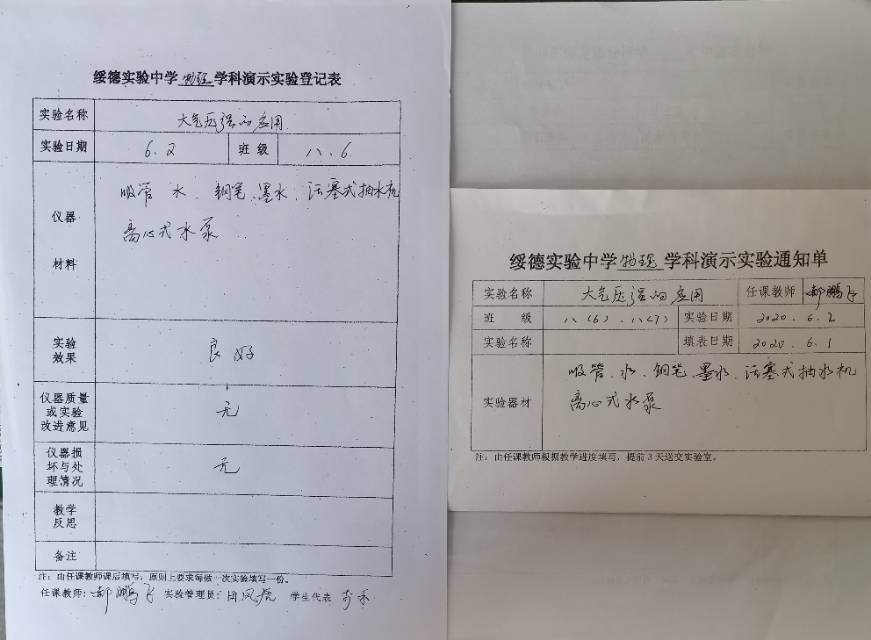 绥德实验中学物理学科演示实验登记表
实验名称 大气压强的应用
实验日期 6.2 班级 八.6
仪器 材料 吸管 水、钢笔、墨水、活塞式抽水机
离心式水泵
实验效果 良好
仪器质量或实验改进意见 无
仪器损坏与处理情况 无
教学反思
备注
注:由任课教师课后填写,原则上要求每做一次实验填写一份。
任课教师:郝鹏飞 实验管理员: 学生代表
绥德实验中学物理学科演示实验通知单
实验名称 大气压强的应用 任课教师 郝鹏飞
班 级 八(6)、八(7) 实验日期 2020.6.2
实验名称 填表日期 2020.6.1
实验器材 吸管、水、钢笔、墨水、活塞式抽水机
离心式水泵
注:由任课教师根据教学进度填写,提前3天送交实验室。